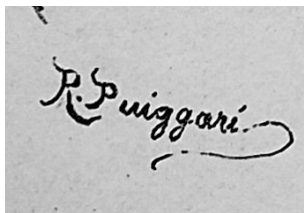 R. Puiggarí